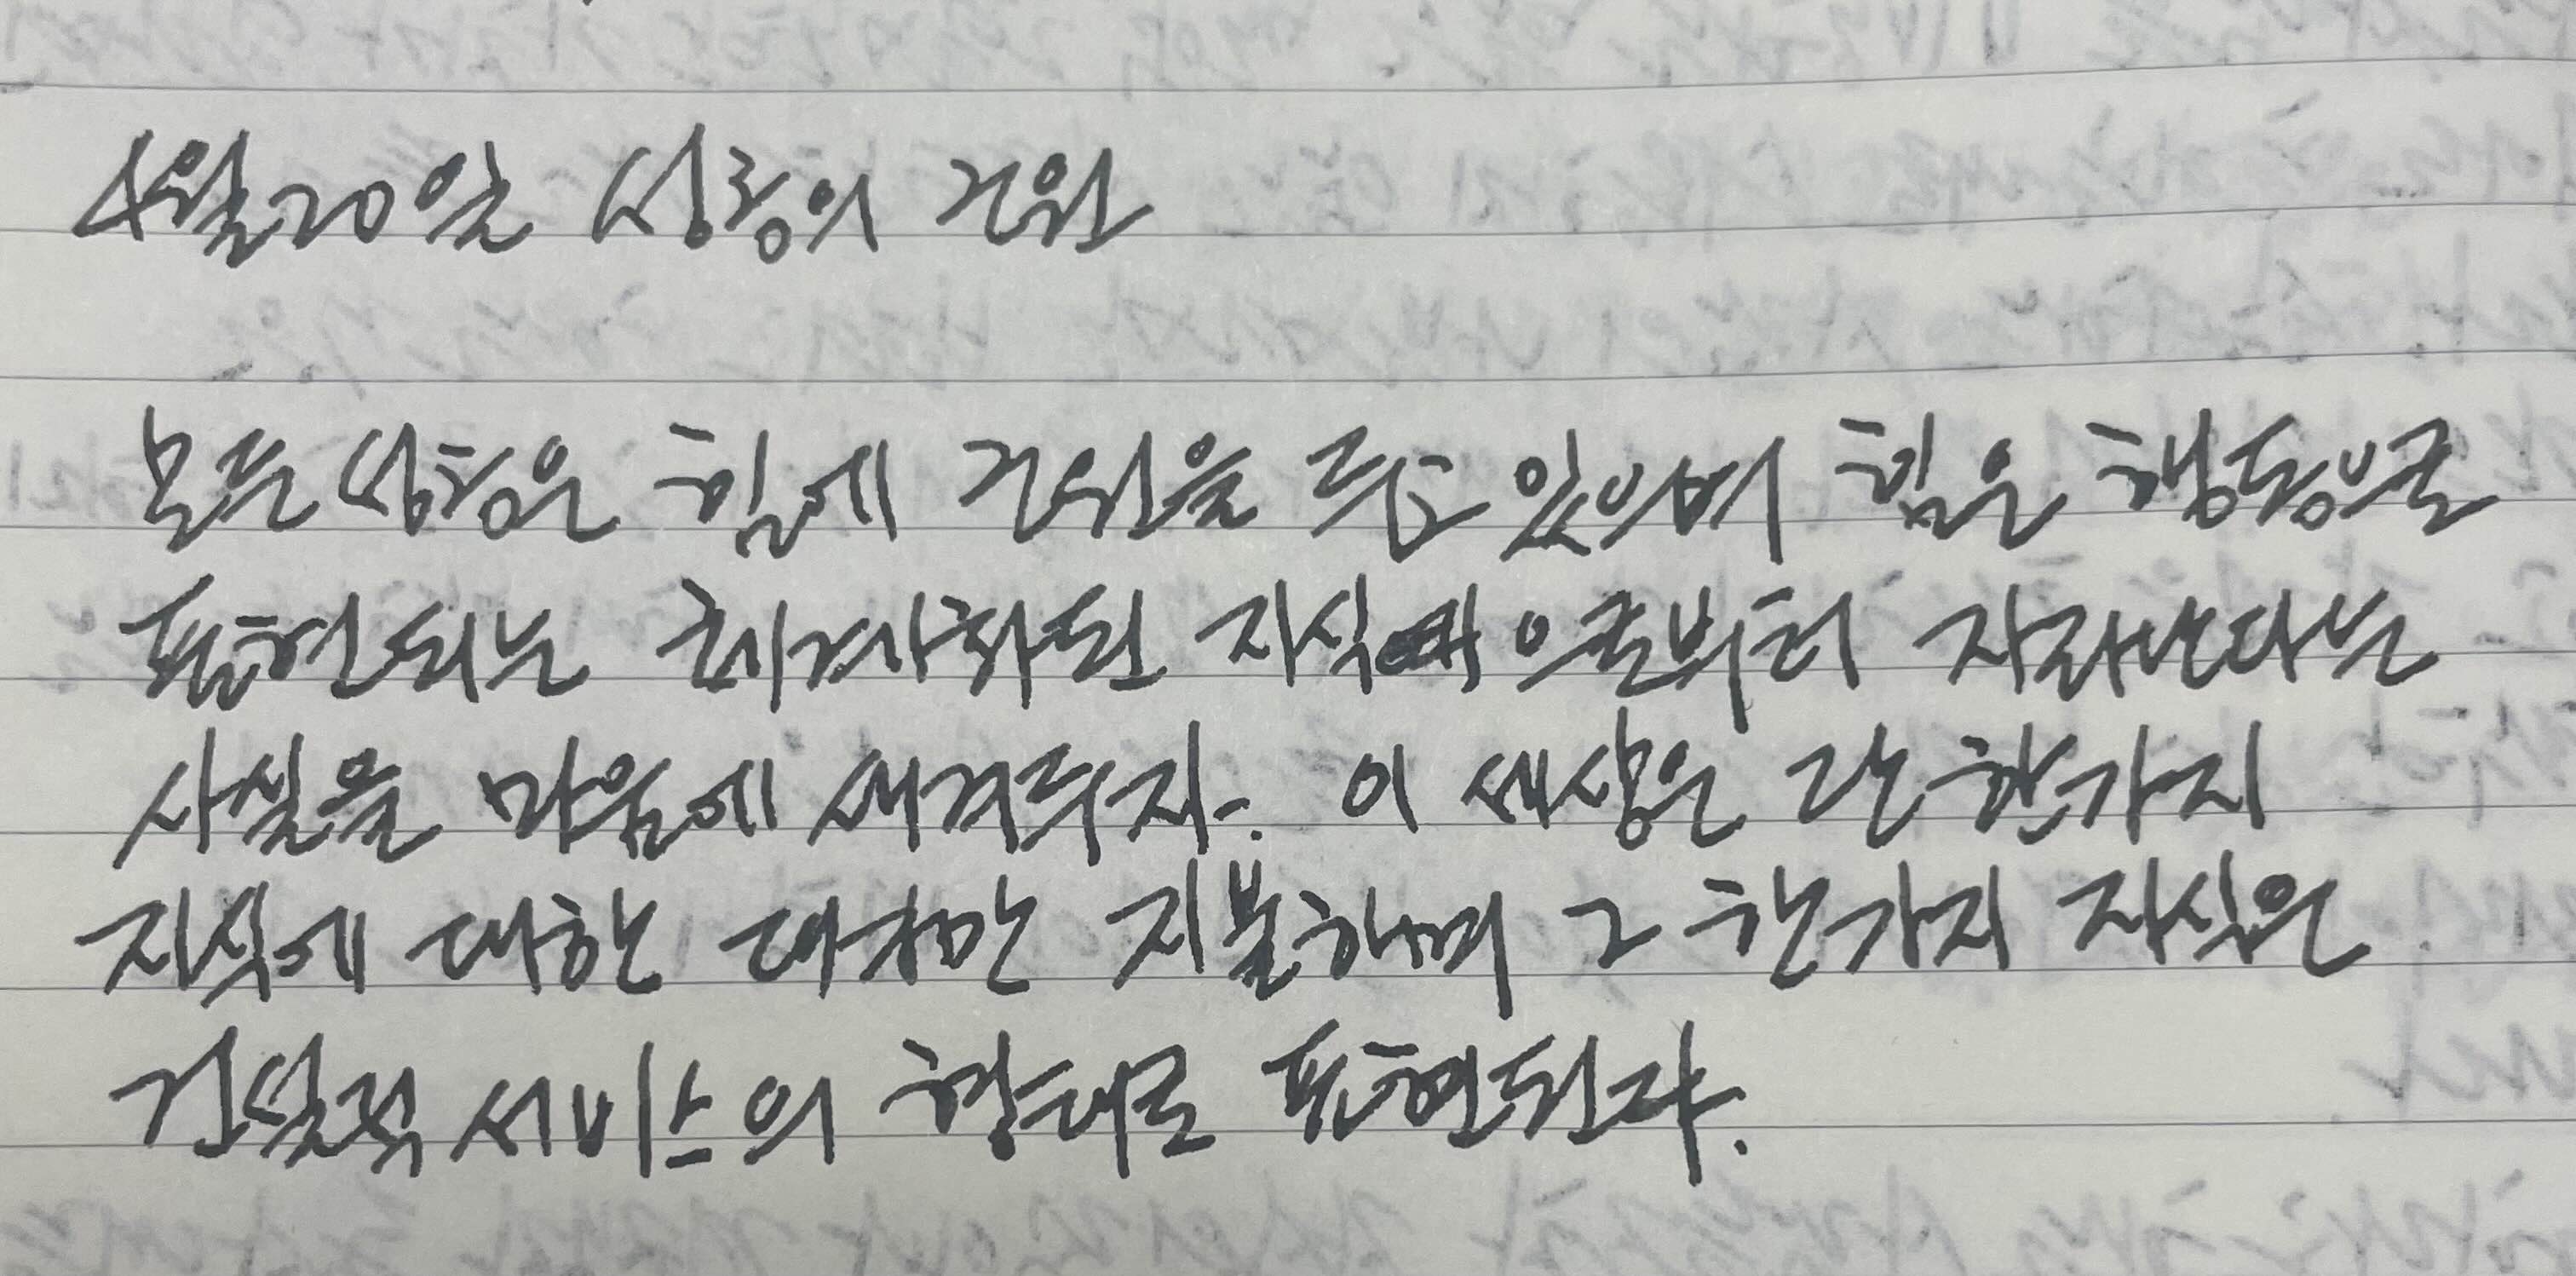 4월20일 성공의 근원
모든 성공은 힘에 근원을 두고 있으며 힘은 행동으로
표현되는 체계화된 지식으로부터 자라난다는
사실을 마음에 새겨두자. 이 세상은 단 한가지
지식에 대한 대가만 지불하며 그 한가지 지식은
건설적 서비스의 형태로 표현된다.